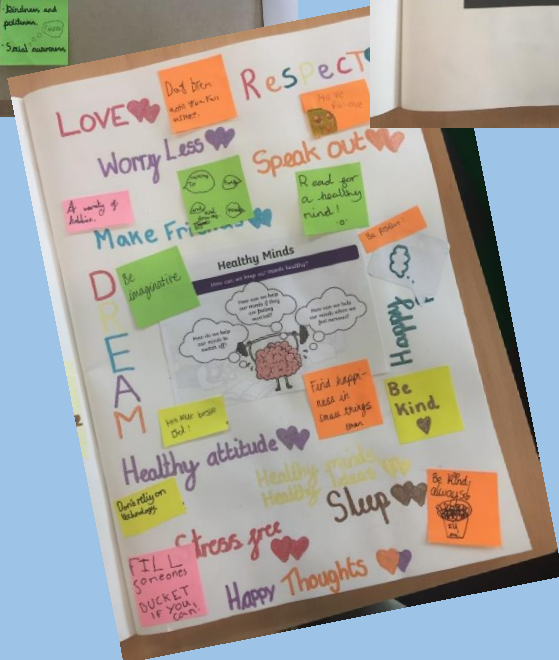 Kindness and
politeness
Social awareness
LOVE
ResPecT
Worry Less
Speak out
A variety of
hobbies.
Read for
a healthy
mind!
Make Friends
Be positive!
Be
imaginative
DREAM
Healthy Minds
How can we keep our minds healthy?
How can we help
our minds if they
are feeling
worried?
How do we help
our minds to
switch off?
How can we help
our minds when we
feel nervous?
Happy
Find happi-
ness in
small things
Be
Kind
Healthy attitude
Healthy minds
Healthy
Don't rely on
technology.
Sleep
Be kind
always
Stress free
FILL
someones
BUCKET
IF YOU
can!
Happy Thoughts